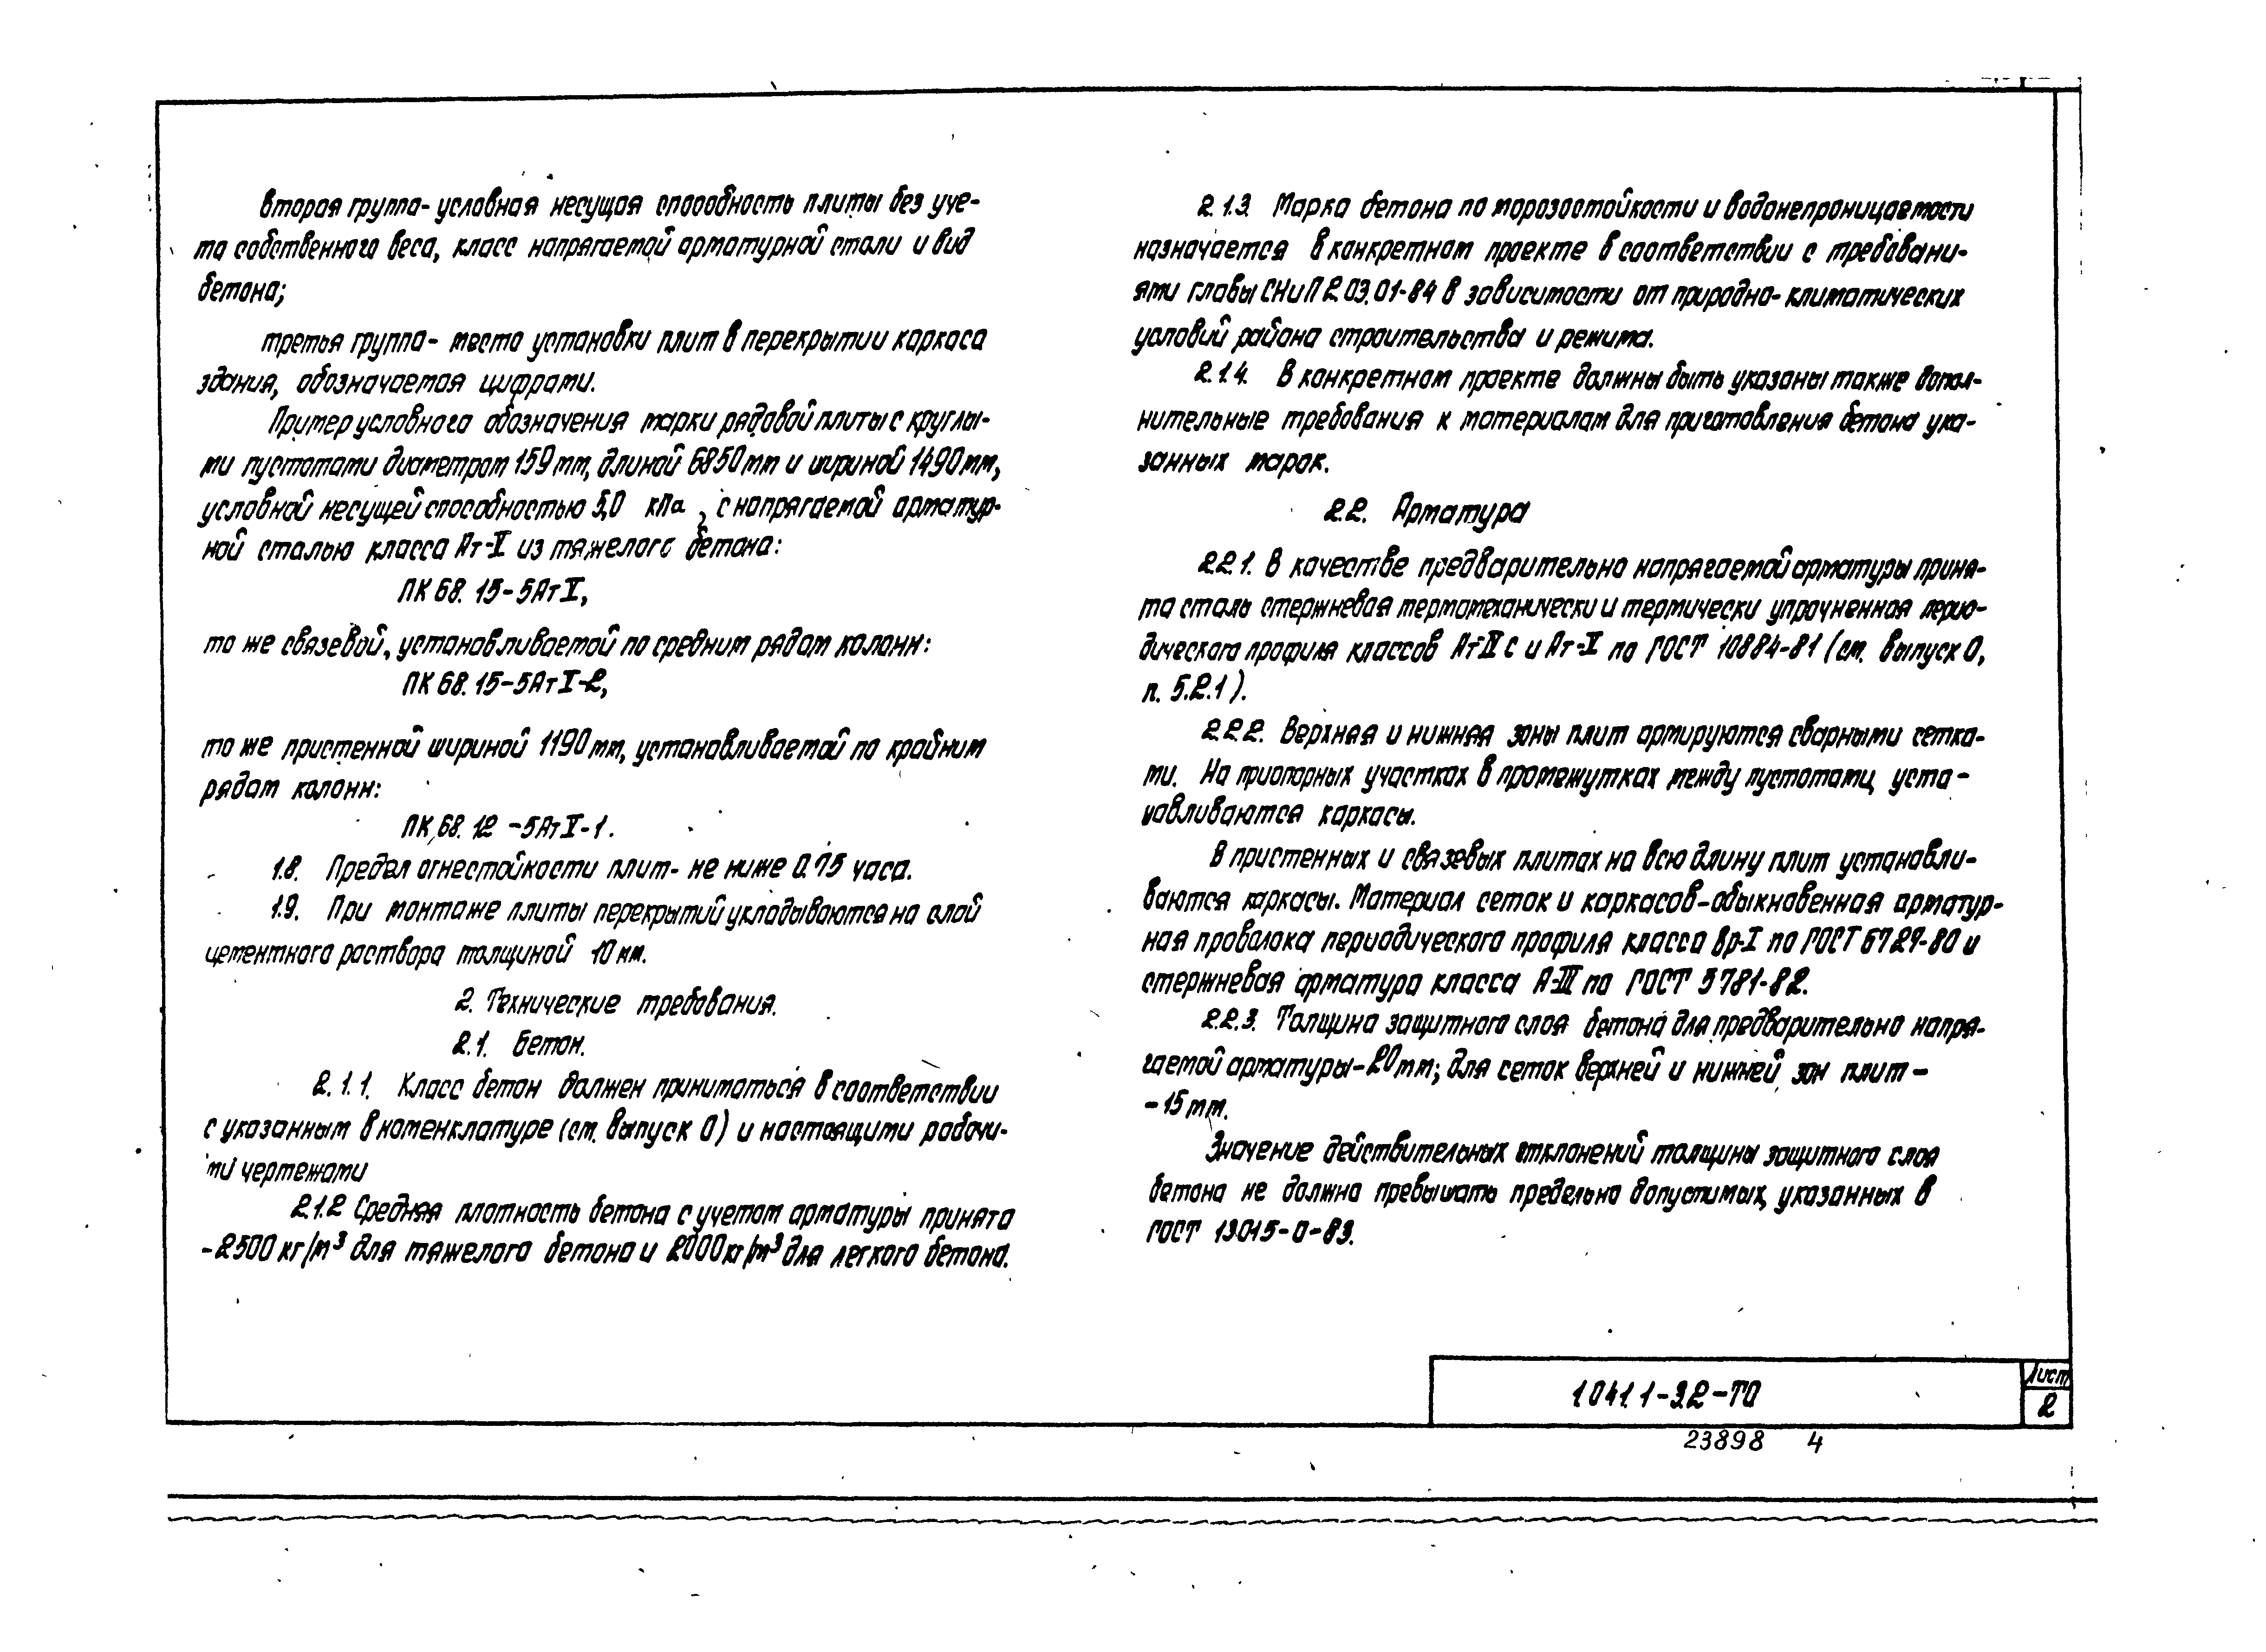 вторая группа- условная несущая способность плиты без уче-
та собственного веса, класс напрягаемой арматурной стали и вид
бетона;
третья группа- место установки плит в перекрытии каркаса
здания, обозначаемая цифрами.
Пример условного обозначения марки рядовой плиты с круглы-
ми пустотами диаметром 159 мм, длиной 6850 мм и шириной 1490 мм,
условной несущей способностью 5,0 кПа, с напрягаемой арматур-
ной сталью класса Ат-V из тяжелого бетона:
ПК 68.15-5АтV,
то же связевой, устанавливаемой по средним рядам колонн:
ПК 68.15-5АтV-2,
то же пристенной шириной 1190 мм, устанавливаемой по крайним
рядам колонн:
ПК 68.12-5АтV-1.
1.8. Предел огнестойкости плит- не ниже 0.75 часа.
1.9. При монтаже плиты перекрытий укладываются на слой
цементного раствора толщиной 10 мм.
2. Технические требования.
2.1. Бетон.
2.1.1. Класс бетон должен приниматься в соответствии
с указанным в номенклатуре (см. выпуск 0) и настоящими рабочи-
ми чертежами
2.1.2 Средняя плотность бетона с учетом арматуры принята
-2500 кг/м³ для тяжелого бетона и 2000 кг/м³ для легкого бетона.
2.1.3. Марка бетона по морозостойкости и водонепроницаемости
назначается в конкретном проекте в соответствии с требовани-
ями главы СНиП 2.03.01-84 в зависимости от природно-климатических
условий района строительства и режима.
2.1.4. В конкретном проекте должны быть указаны также допол-
нительные требования к материалам для приготовления бетона ука-
занных марок.
2.2. Арматура
2.2.1. В качестве предварительно напрягаемой арматуры приня-
та сталь стержневая термомеханически и термически упрочненная перио-
дического профиля классов АтIVС и Ат-V по ГОСТ 10884-81 (см. выпуск 0,
п. 5.2.1).
2.2.2. Верхняя и нижняя зоны плит армируются сварными сетка-
ми. На приопорных участках в промежутках между пустотами уста-
навливаются каркасы.
В пристенных и связевых плитах на всю длину плит установли-
ваются каркасы. Материал сеток и каркасов-обыкновенная арматур-
ная проволока периодического профиля класса Вр-I по ГОСТ 6727-80 и
стержневая арматура класса А-III по ГОСТ 5781-82.
2.2.3. Толщина защитного слоя бетона для предварительно напря-
гаемой арматуры-20мм; для сеток верхней и нижней зон плит-
-15мм.
Значение действительных отклонений толщины защитного слоя
бетона не должна превышать предельно допустимых, указанных в
ГОСТ 13015-0-83.
1.041.1-3.2-ТО
Лист
2
23898 4